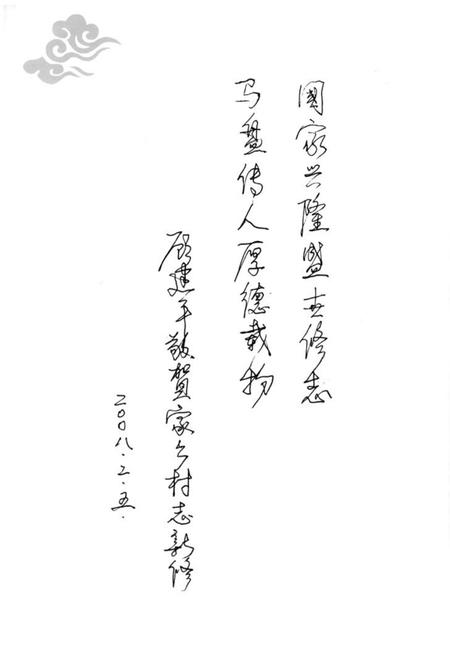 國家兴隆盛世修志
马盘传人厚德载物
顾建平敬贺家乡村志新修
二〇〇八.二.五.